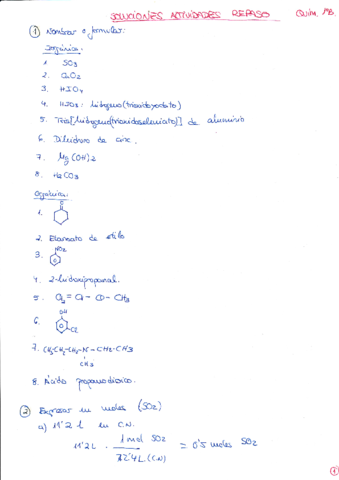 SOLUCIONES ACTIVIDADES REPASO
Quím. 2ºB.
① Nombrar o formular:
Inorgánica:
1. SO3
2. CaO2
3. HIO4
4. HIO3: hidrogeno(trioxidoyodato)
5. Tris[hidrogeno(trioxidoseleniato)] de aluminio
6. Dihidruro de cinc.
7. Mg(OH)2
8. H2CO3
Orgánica:
1. O
2. Etanoato de etilo
3. NO2
4. 2-hidroxipropanal.
5. CH2=CH-O-CH3
6. OH
Cl
7. CH3CH2-CH2-N-CH2-CH3
CH3
8. Ácido propanodioico.
② Expresar en moles (SO2)
a) 11'2 L en C.N.
11'2 L · 1 mol SO2 / 22'4 L (C.N) = 0'5 moles SO2
①